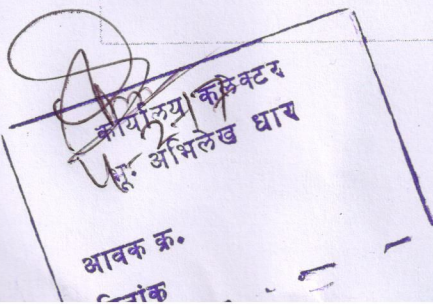 कार्यालय कलेक्टर
भू. अभिलेख धार
आवक क्र.
दिनांक